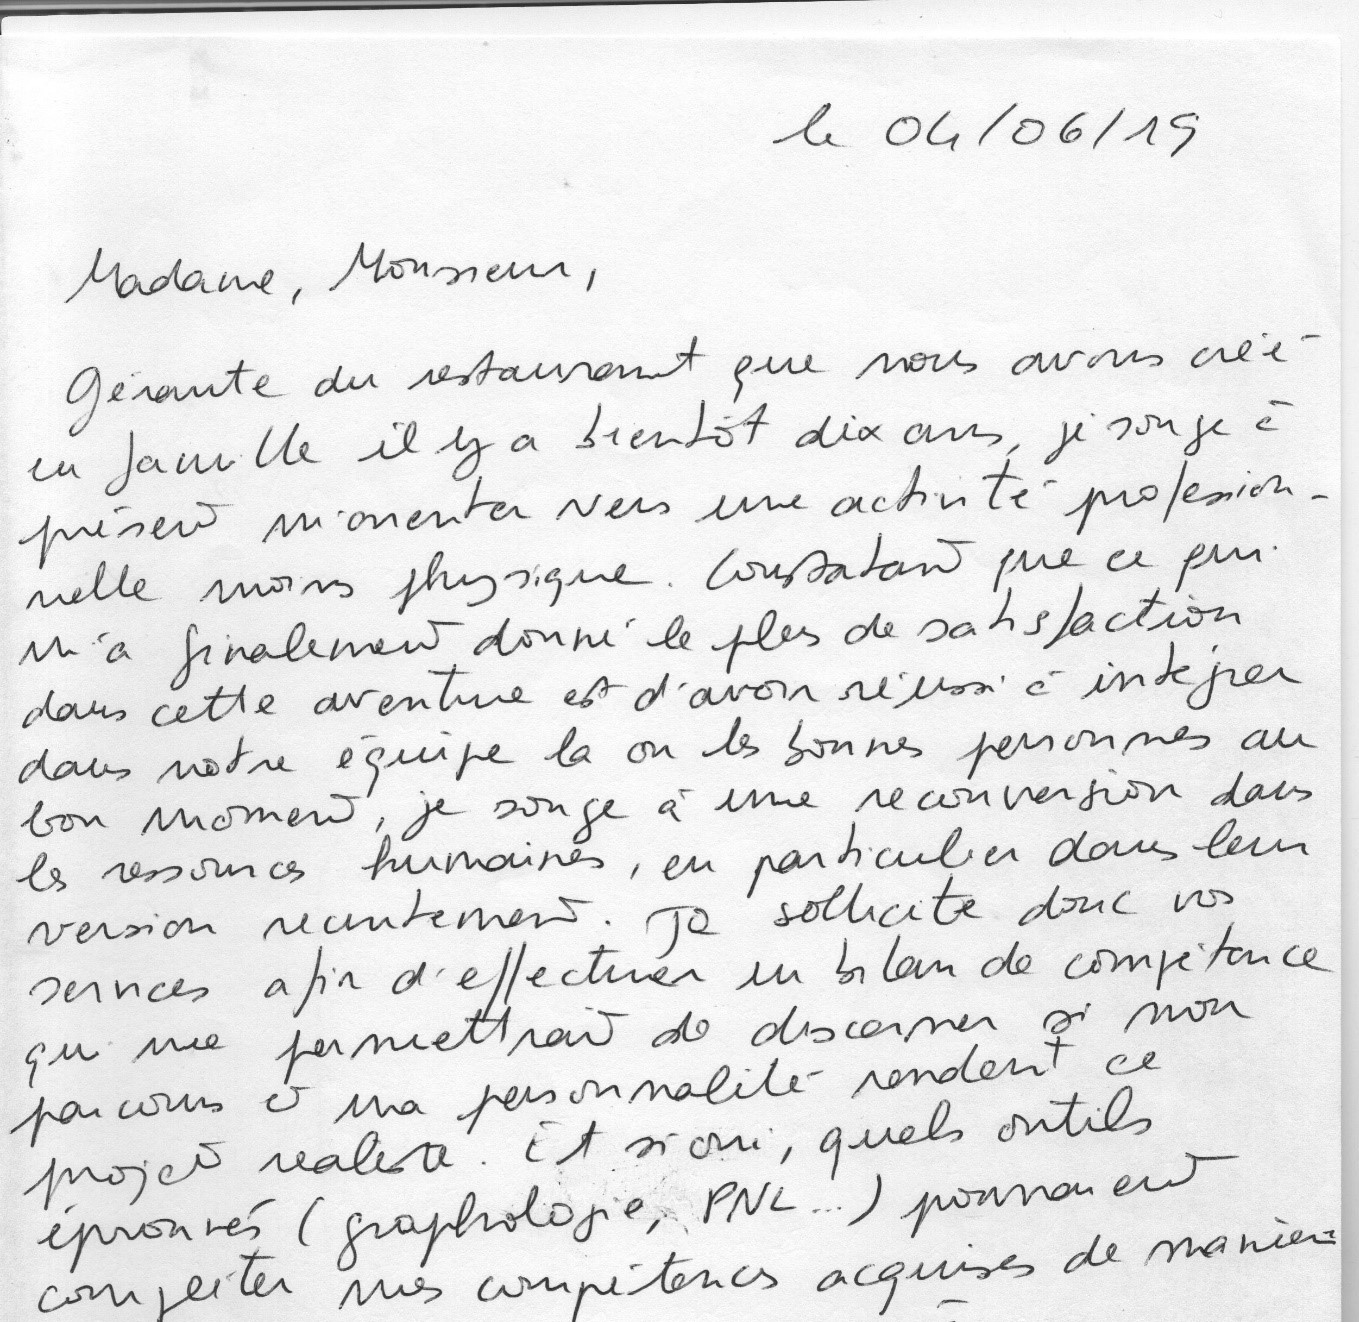 le 04/06/19
Madame, Monsieur,
Gérante du restaurant que nous avons créé
en famille il y a bientôt dix ans, je songe à
présent m'orienter vers une activité profession-
nelle moins physique. Constatant que ce qui
m'a finalement donné le plus de satisfaction
dans cette aventure est d'avoir réussi à intégrer
dans notre équipe la ou les bonnes personnes au
bon moment, je songe à une reconversion dans
les ressources humaines, en particulier dans leur
version recrutement. Je sollicite donc vos
services afin d'effectuer un bilan de compétence
qui me permettrait de discerner si mon
parcours et ma personnalité rendent ce
projet réaliste. Et si oui, quels outils
éprouvés (graphologie, PNL...) pourraient
compléter mes compétences acquises de manière